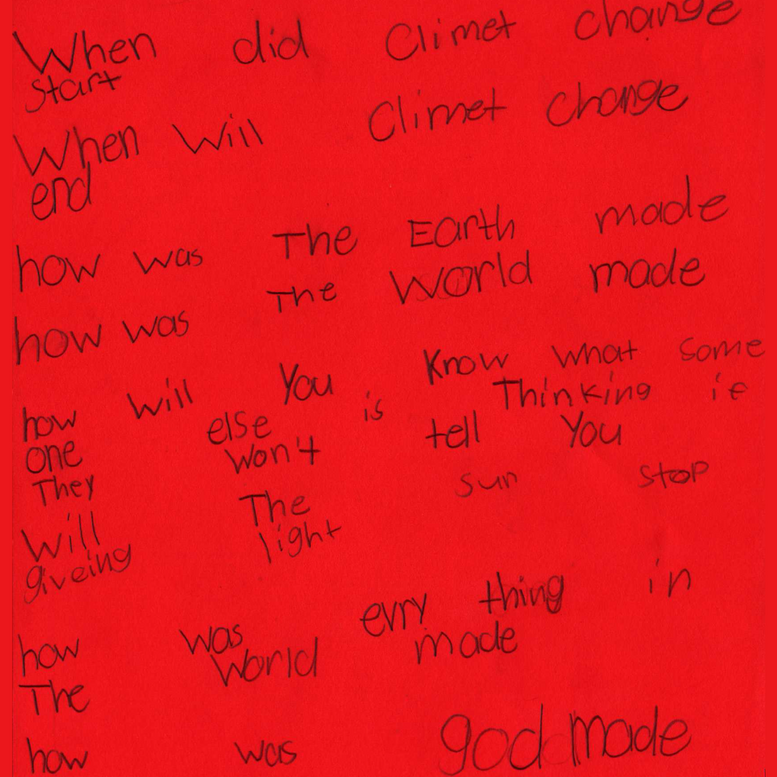 When did Climet change
start
When will Climet change
end
how was The Earth made
how was The World made
how will You Know what some
one else is Thinking if
They won't tell You
Will The sun stop
giveing light
how was evry thing in
The World made
how was god made